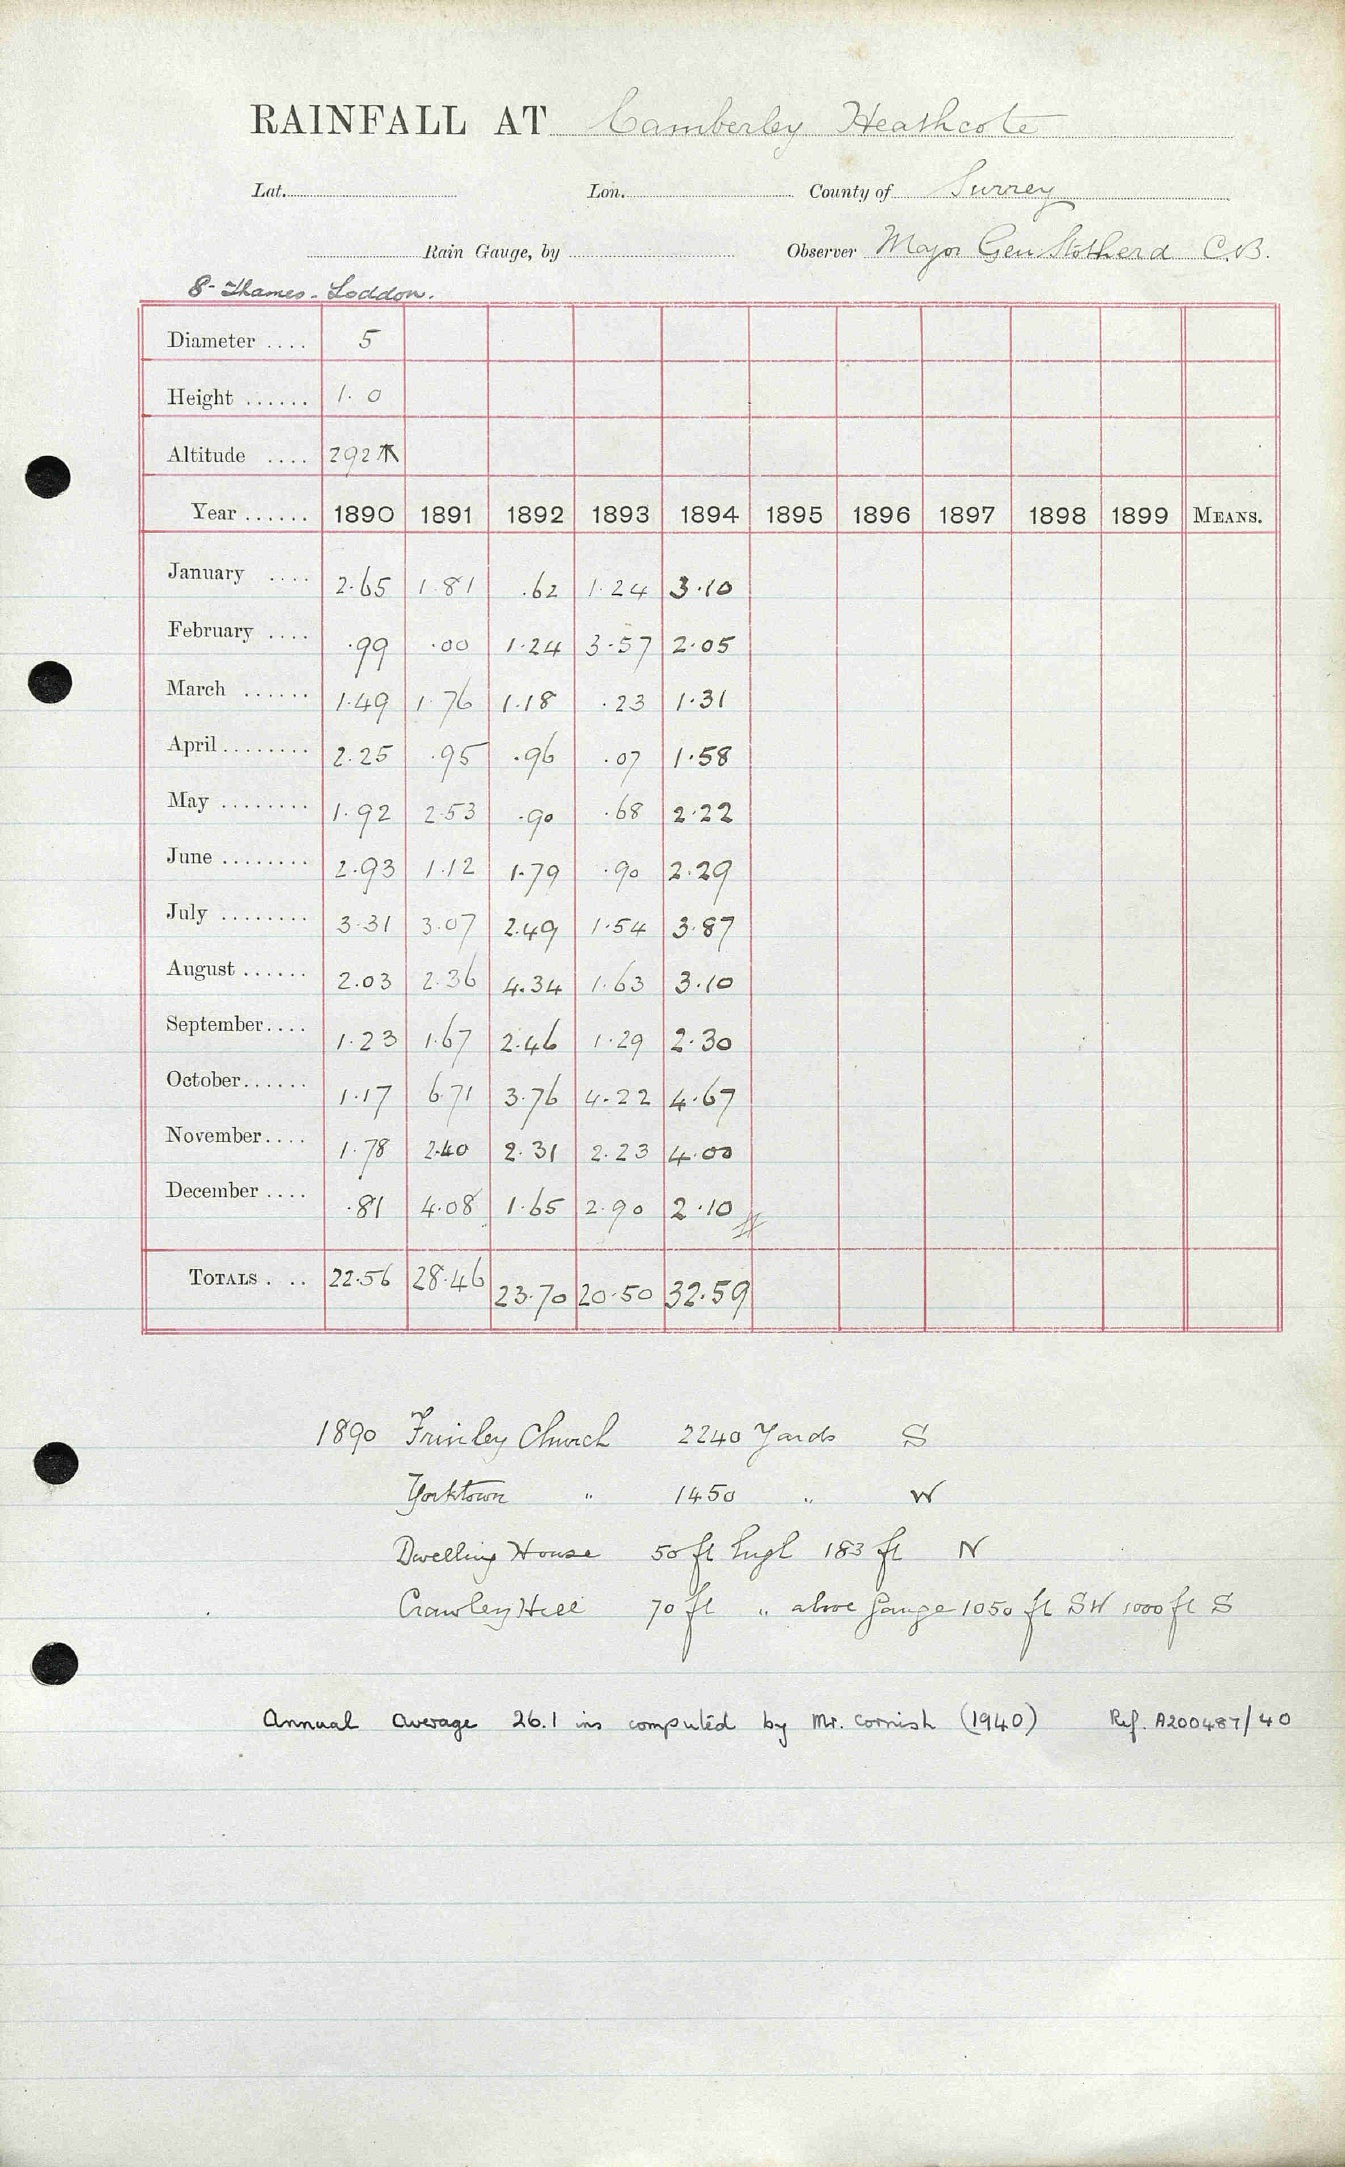 RAINFALL AT Camberley Heathcote
Lat. Lon. County of Surrey
Rain Gauge, by Observer Major Gen Stotherd C.B.
8- Thames - Loddon.
Diameter .... 5
Height ...... 1. 0
Altitude .... 292
Year ...... 1890 1891 1892 1893 1894 1895 1896 1897 1898 1899 MEANS.
January .... 2.65 1.81 .62 1.24 3.10
February .... .99 .00 1.24 3.57 2.05
March ...... 1.49 1.76 1.18 .23 1.31
April ........ 2.25 .95 .96 .07 1.58
May ........ 1.92 2.53 .90 .68 2.22
June ........ 2.93 1.12 1.79 .90 2.29
July ........ 3.31 3.07 2.49 1.54 3.87
August ...... 2.03 2.36 4.34 1.63 3.10
September.... 1.23 1.67 2.46 1.29 2.30
October...... 1.17 6.71 3.76 4.22 4.67
November.... 1.78 2.40 2.31 2.23 4.00
December .... .81 4.08 1.65 2.90 2.10
TOTALS . .. 22.56 28.46 23.70 20.50 32.59
1890 Frimley Church 2240 Yards S
Yorktown " 1450 " W
Dwelling House 50 ft high 183 ft N
Crawley Hill 70 ft " above Gauge 1050 ft SW 1000 ft S
Annual average 26.1 ins computed by Mr. Cornish (1940) Ref. A200487/40